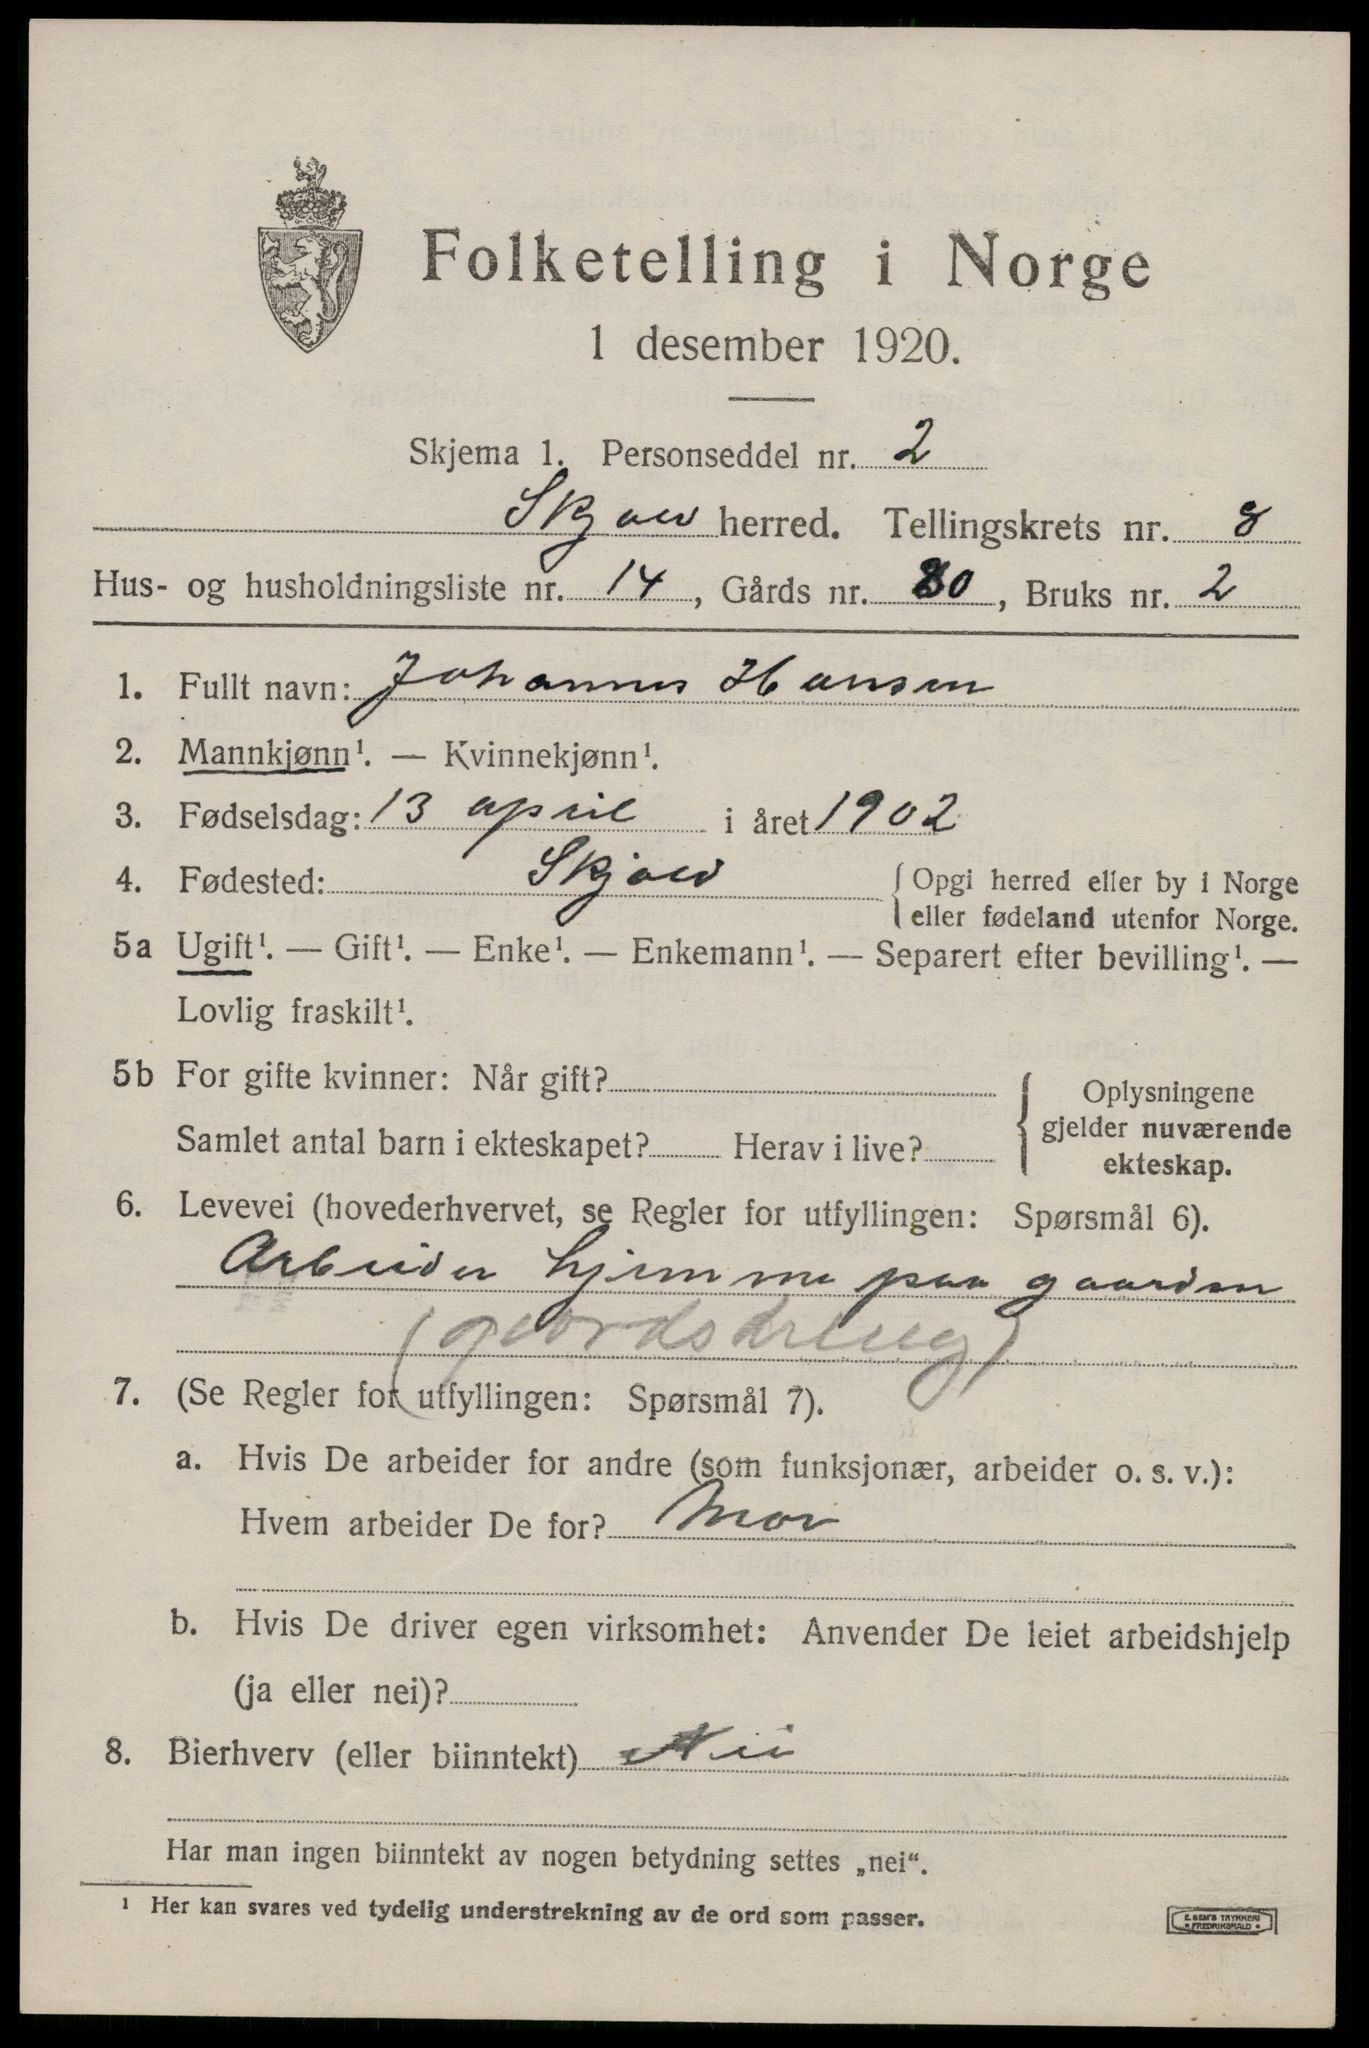 Folketelling i Norge
1 desember 1920.
Skjema 1. Personseddel nr. 2
Skjold herred. Tellingskrets nr. 8
Hus- og husholdningsliste nr. 14, Gårds nr. 80, Bruks nr. 2
1. Fullt navn: Johannes Hansen
2. Mannkjønn¹. — Kvinnekjønn¹.
3. Fødselsdag: 13 april i året 1902
4. Fødested: Skjold { Opgi herred eller by i Norge
eller fødeland utenfor Norge.
5a Ugift¹. — Gift¹. — Enke¹. — Enkemann¹. — Separert efter bevilling¹. —
Lovlig fraskilt¹.
5b For gifte kvinner: Når gift?
Samlet antal barn i ekteskapet? Herav i live?
{ Oplysningene
gjelder nuværende
ekteskap.
6. Levevei (hovederhvervet, se Regler for utfyllingen: Spørsmål 6).
Arbeider hjemme paa gaarden
(gaardsdreng)
7. (Se Regler for utfyllingen: Spørsmål 7).
a. Hvis De arbeider for andre (som funksjonær, arbeider o. s. v.):
Hvem arbeider De for? Mor
b. Hvis De driver egen virksomhet: Anvender De leiet arbeidshjelp
(ja eller nei)?
8. Bierhverv (eller biinntekt) Nei
Har man ingen biinntekt av nogen betydning settes „nei".
¹ Her kan svares ved tydelig understrekning av de ord som passer.
E. SEM'S TRYKKERI
FREDRIKSHALD